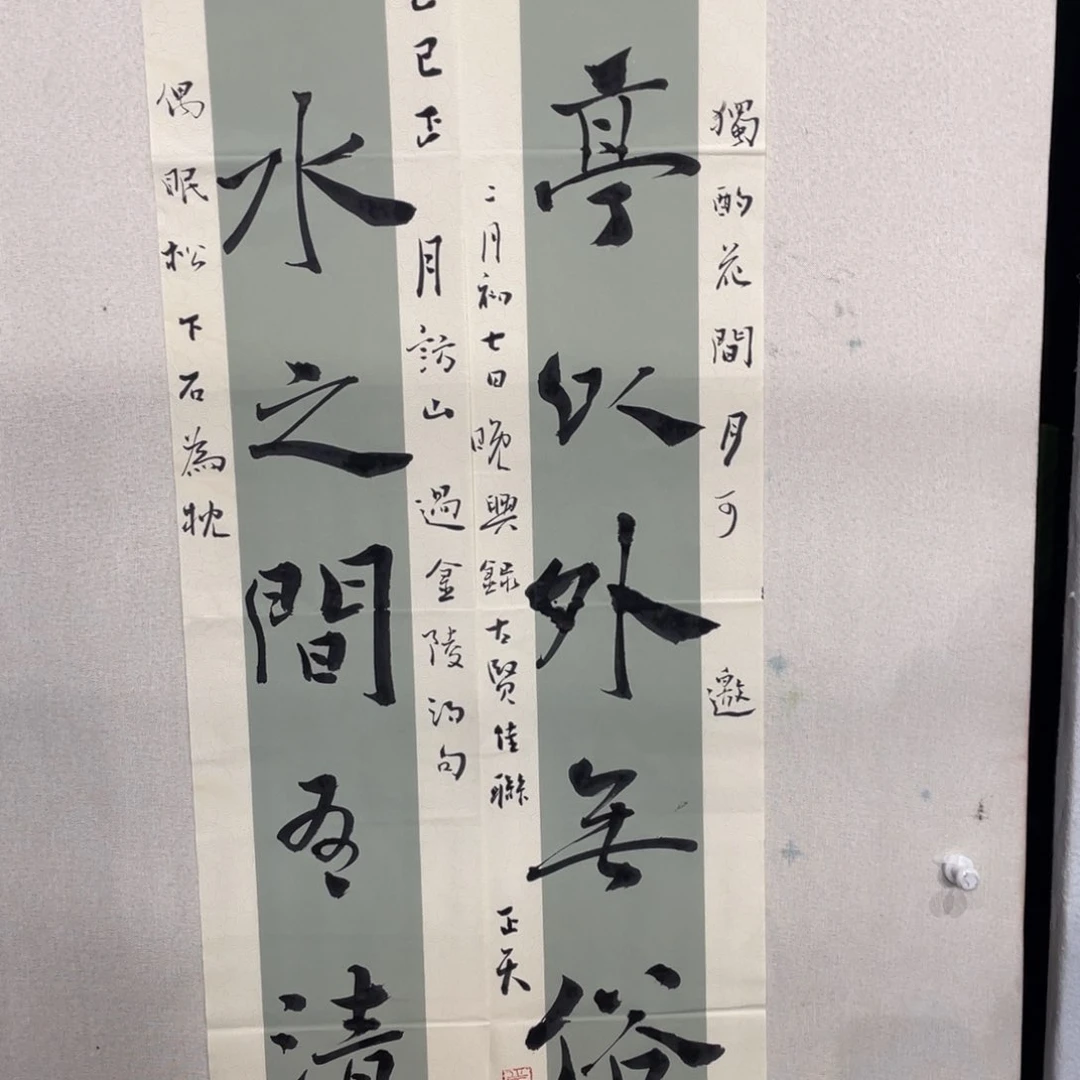 獨酌花間月可邀
亭以外無俗
二月初七日晚興錄古賢佳聯 正天
巳正月訪山過金陵得句
水之間有清
偶眠松下石為枕